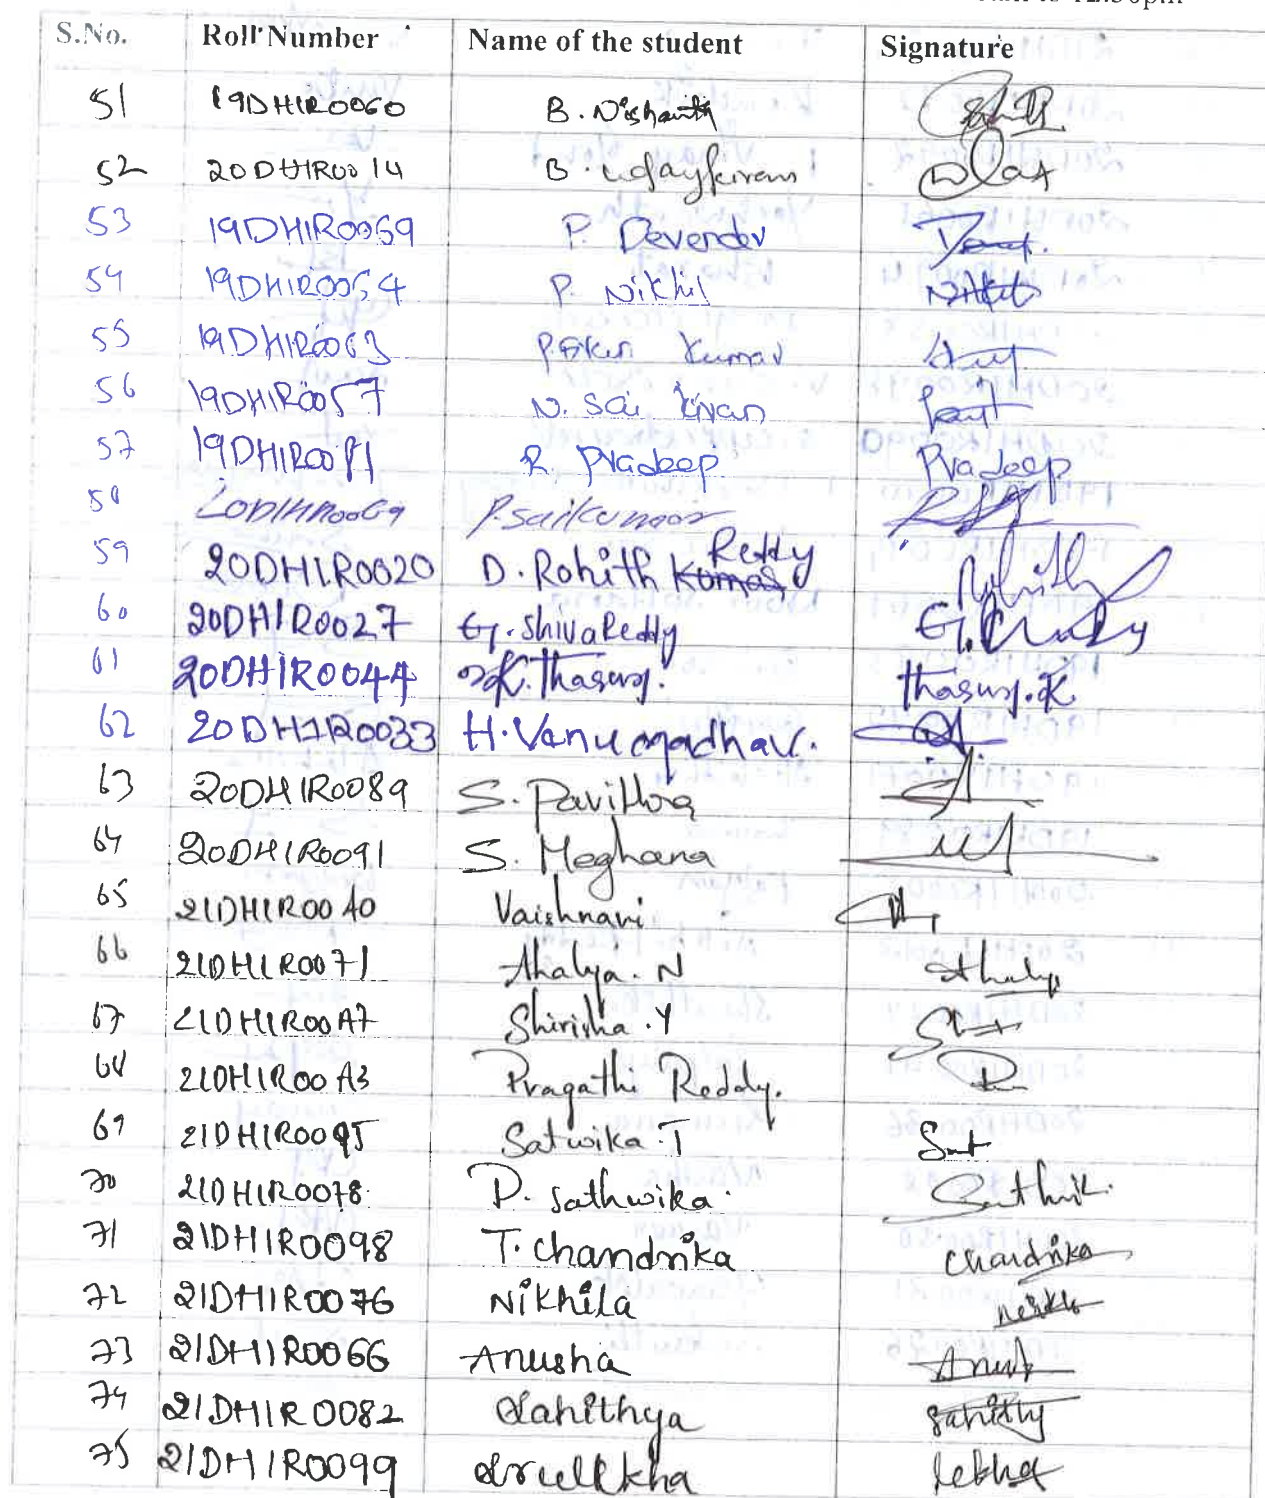 to 12:30pm
S.No. Roll Number Name of the student Signature
51 19DHIR0060 B. Nishanth
52 20DHIR0014 B. Udaykiran
53 19DHIR0069 P. Devender
54 19DHIR0064 P. Nikhil Nikhil
55 19DHIR0063 Kumar
56 19DHIR0057 N. Sai Kiran
57 19DHIR0081 R. Pradeep Pradeep
58 20DIHR0069 P. Saikumar
59 20DHIR0020 D. Rohith Kumar Reddy Rohith
60 20DHIR0027 G. Shiva Reddy
61 20DHIR0044 K. Thaswj. Thaswj. K
62 20DHIR0033 H. Venumadhav.
63 20DHIR0089 S. Pavithra
64 20DHIR0091 S. Meghana
65 21DHIR00A0 Vaishnavi
66 21DHIR0071 Ahalya. N Ahalya
67 21DHIR00A7 Shirisha. Y
68 21DHIR00A3 Pragathi Reddy.
69 21DHIR0095 Satwika. T Sat
70 21DHIR0078 D. Sathwika. Sathwik.
71 21DHIR0098 T. Chandrika Chandrika
72 21DHIR0076 Nikhila
73 21DHIR0066 Anusha Anush
74 21DHIR0082 Sahithya Sahithy
75 21DHIR0099 Sreelekha lekha